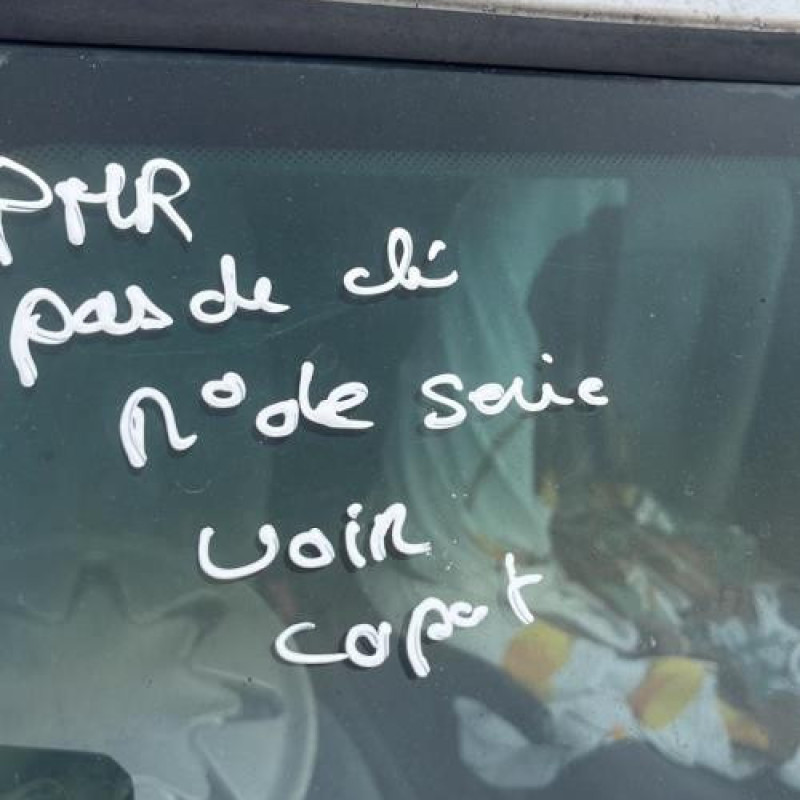 PMR
pas de clé
n° de serie
voir
capot